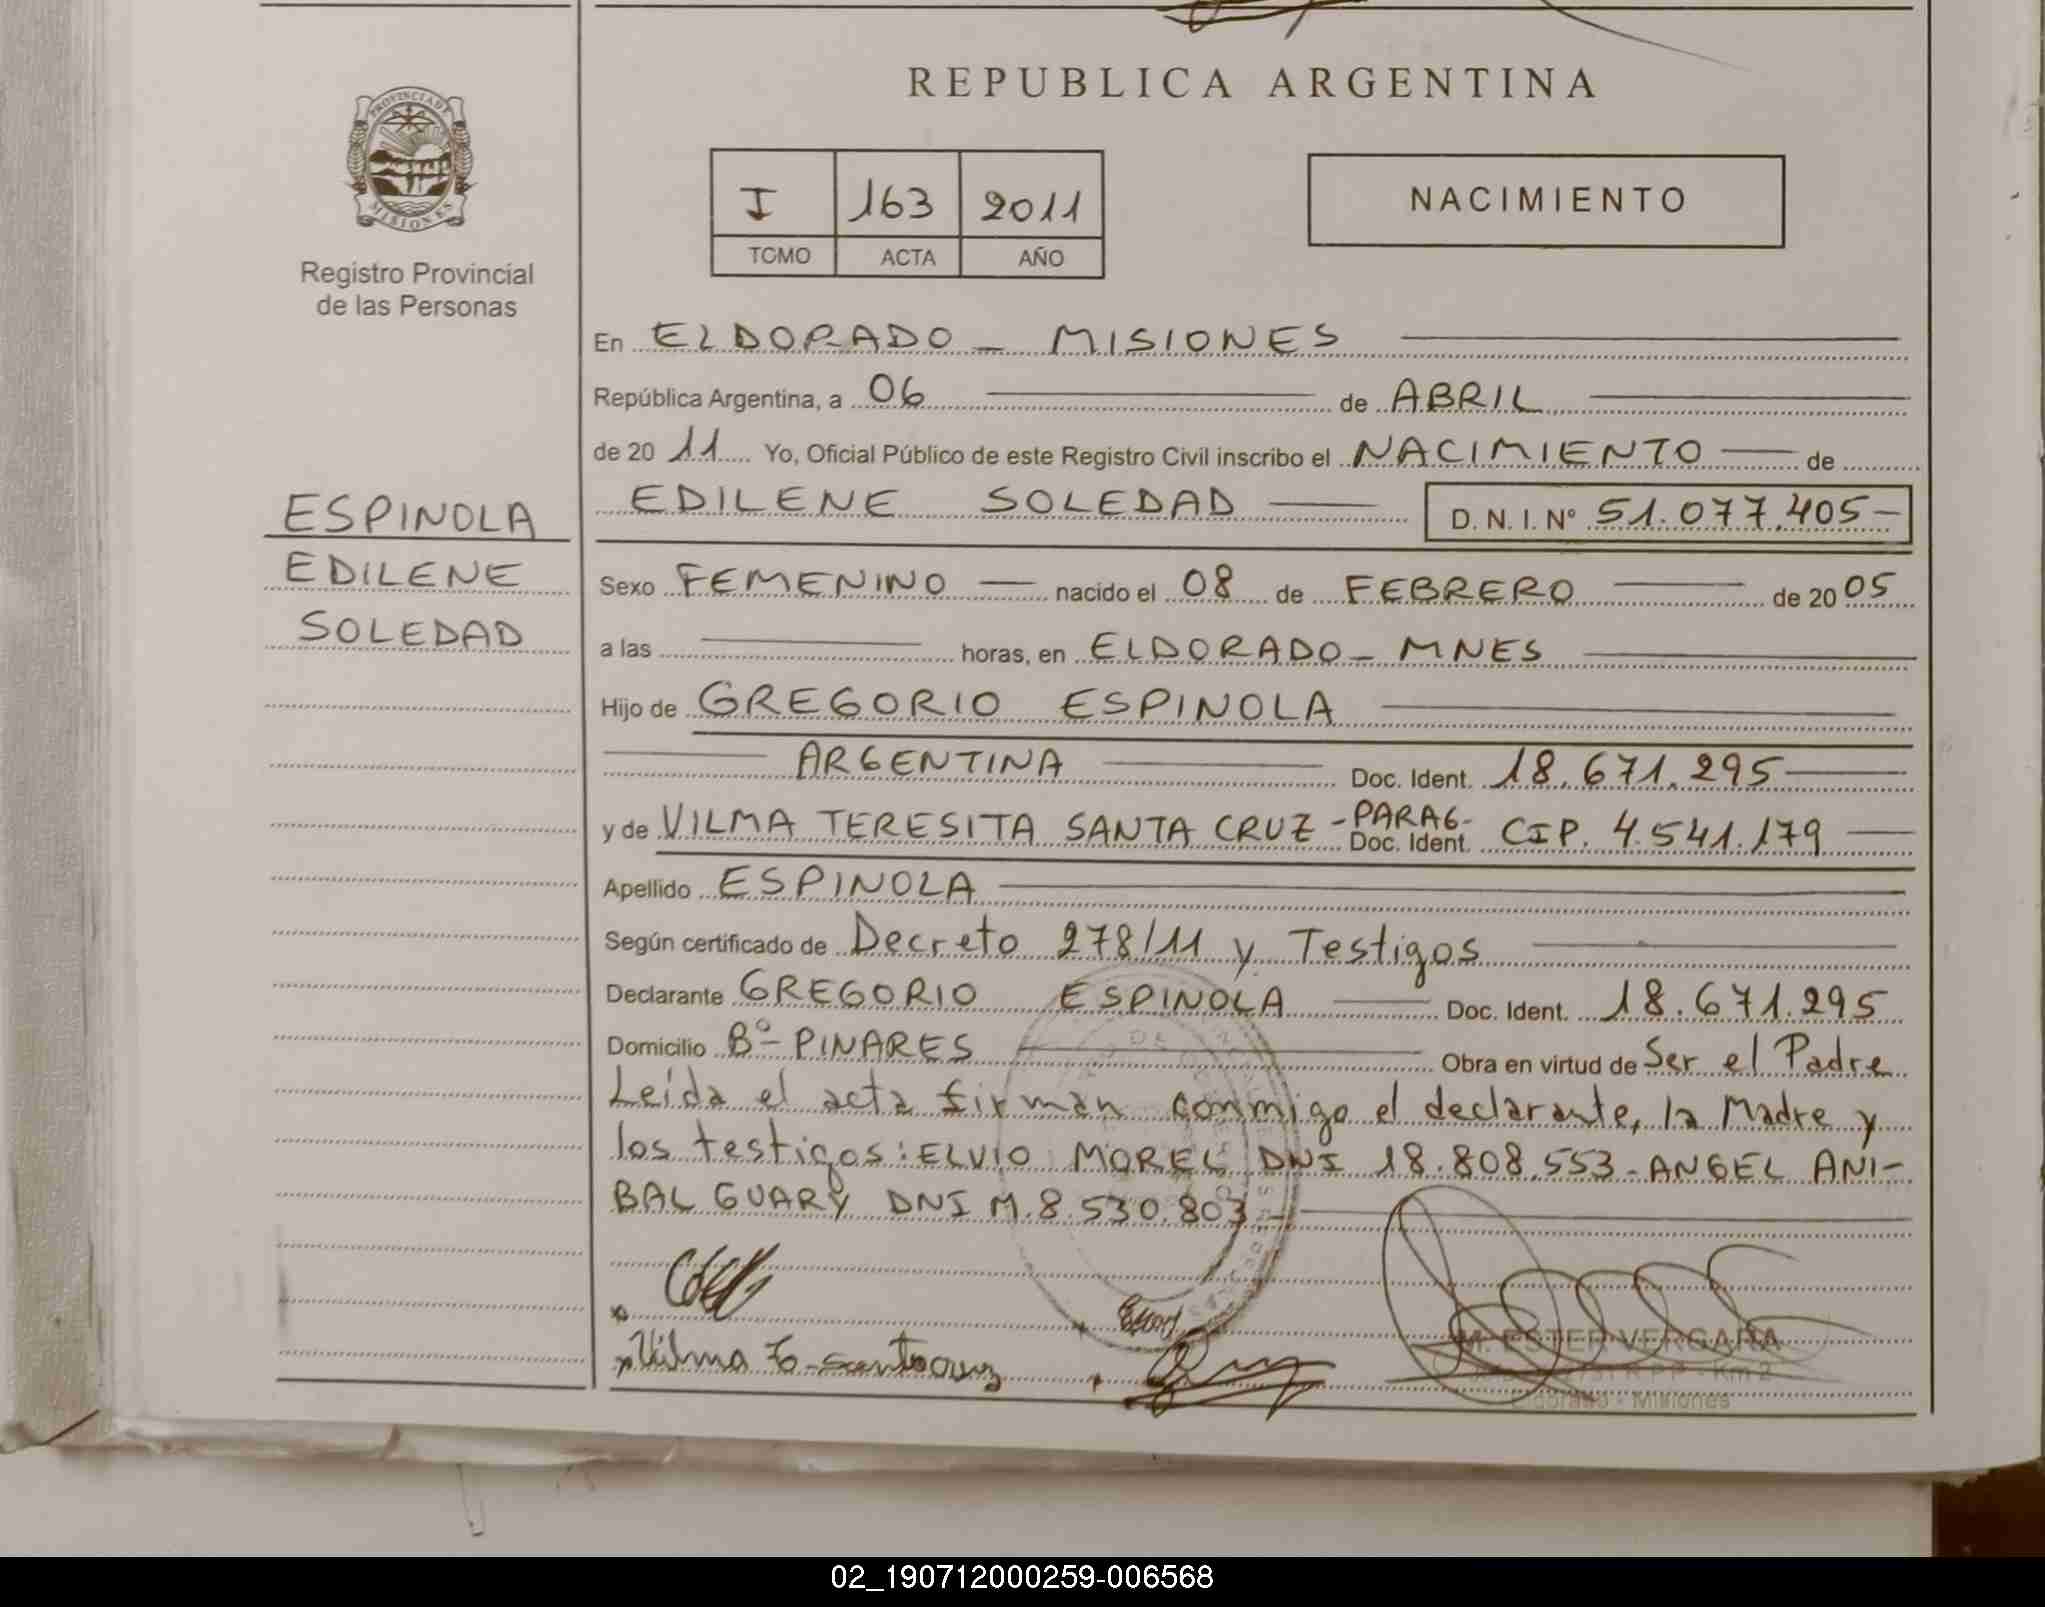 REPUBLICA ARGENTINA
PROVINCIA DE
MISIONES
Registro Provincial
de las Personas
I 163 2011
TOMO ACTA AÑO
NACIMIENTO
En ELDORADO - MISIONES
República Argentina, a 06 de ABRIL
de 20 11 Yo, Oficial Público de este Registro Civil inscribo el NACIMIENTO de
EDILENE SOLEDAD D. N. I. Nº 51.077.405-
ESPINOLA
EDILENE
SOLEDAD
Sexo FEMENINO nacido el 08 de FEBRERO de 20 05
a las horas, en ELDORADO - MNES
Hijo de GREGORIO ESPINOLA
ARGENTINA Doc. Ident. 18.671.295
y de VILMA TERESITA SANTA CRUZ - PARAG- Doc. Ident. CIP. 4.541.179
Apellido ESPINOLA
Según certificado de Decreto 278/11 y Testigos
Declarante GREGORIO ESPINOLA Doc. Ident. 18.671.295
Domicilio Bº- PINARES Obra en virtud de Ser el Padre
Leída el acta firman conmigo el declarante, la Madre y
los testigos: ELVIO MOREL DNI 18.808.553 - ANGEL ANI-
BAL GUARY DNI M.8.530.803 -
Vilma T. Santacruz
M. ESTER VERGARA
R.P.P. - Km 2
Eldorado - Misiones
02_190712000259-006568